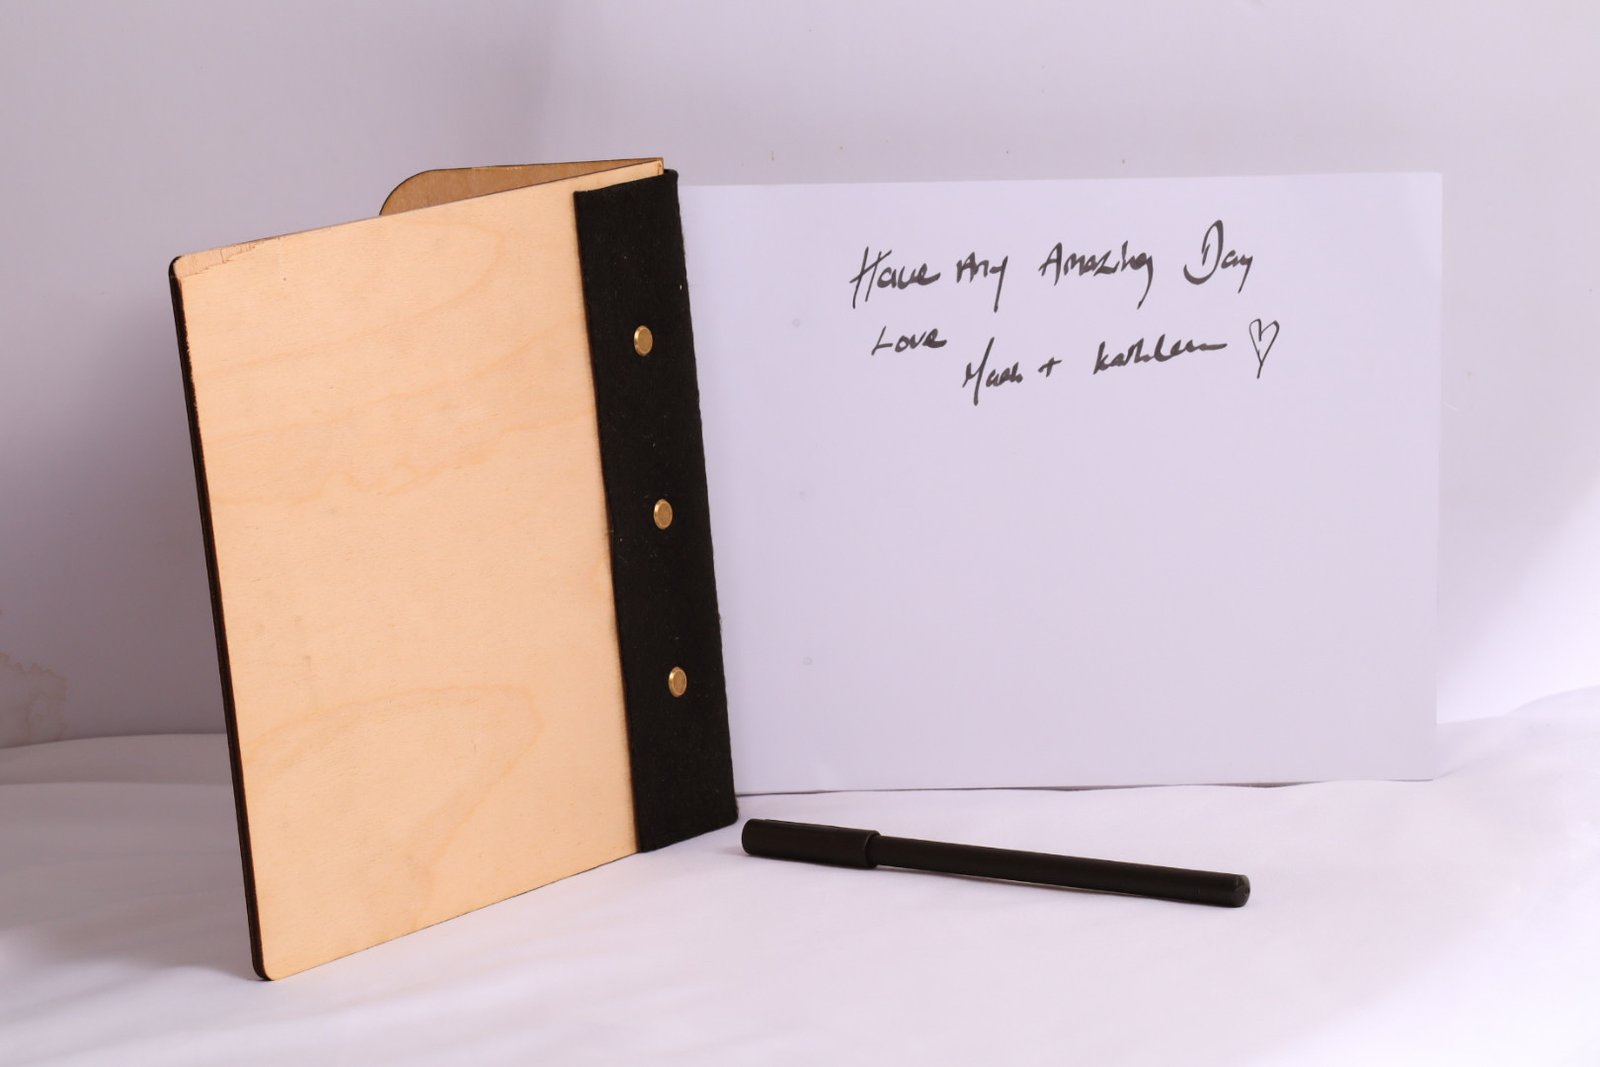 Have Any Amazing Day
Love
+ Kathleen